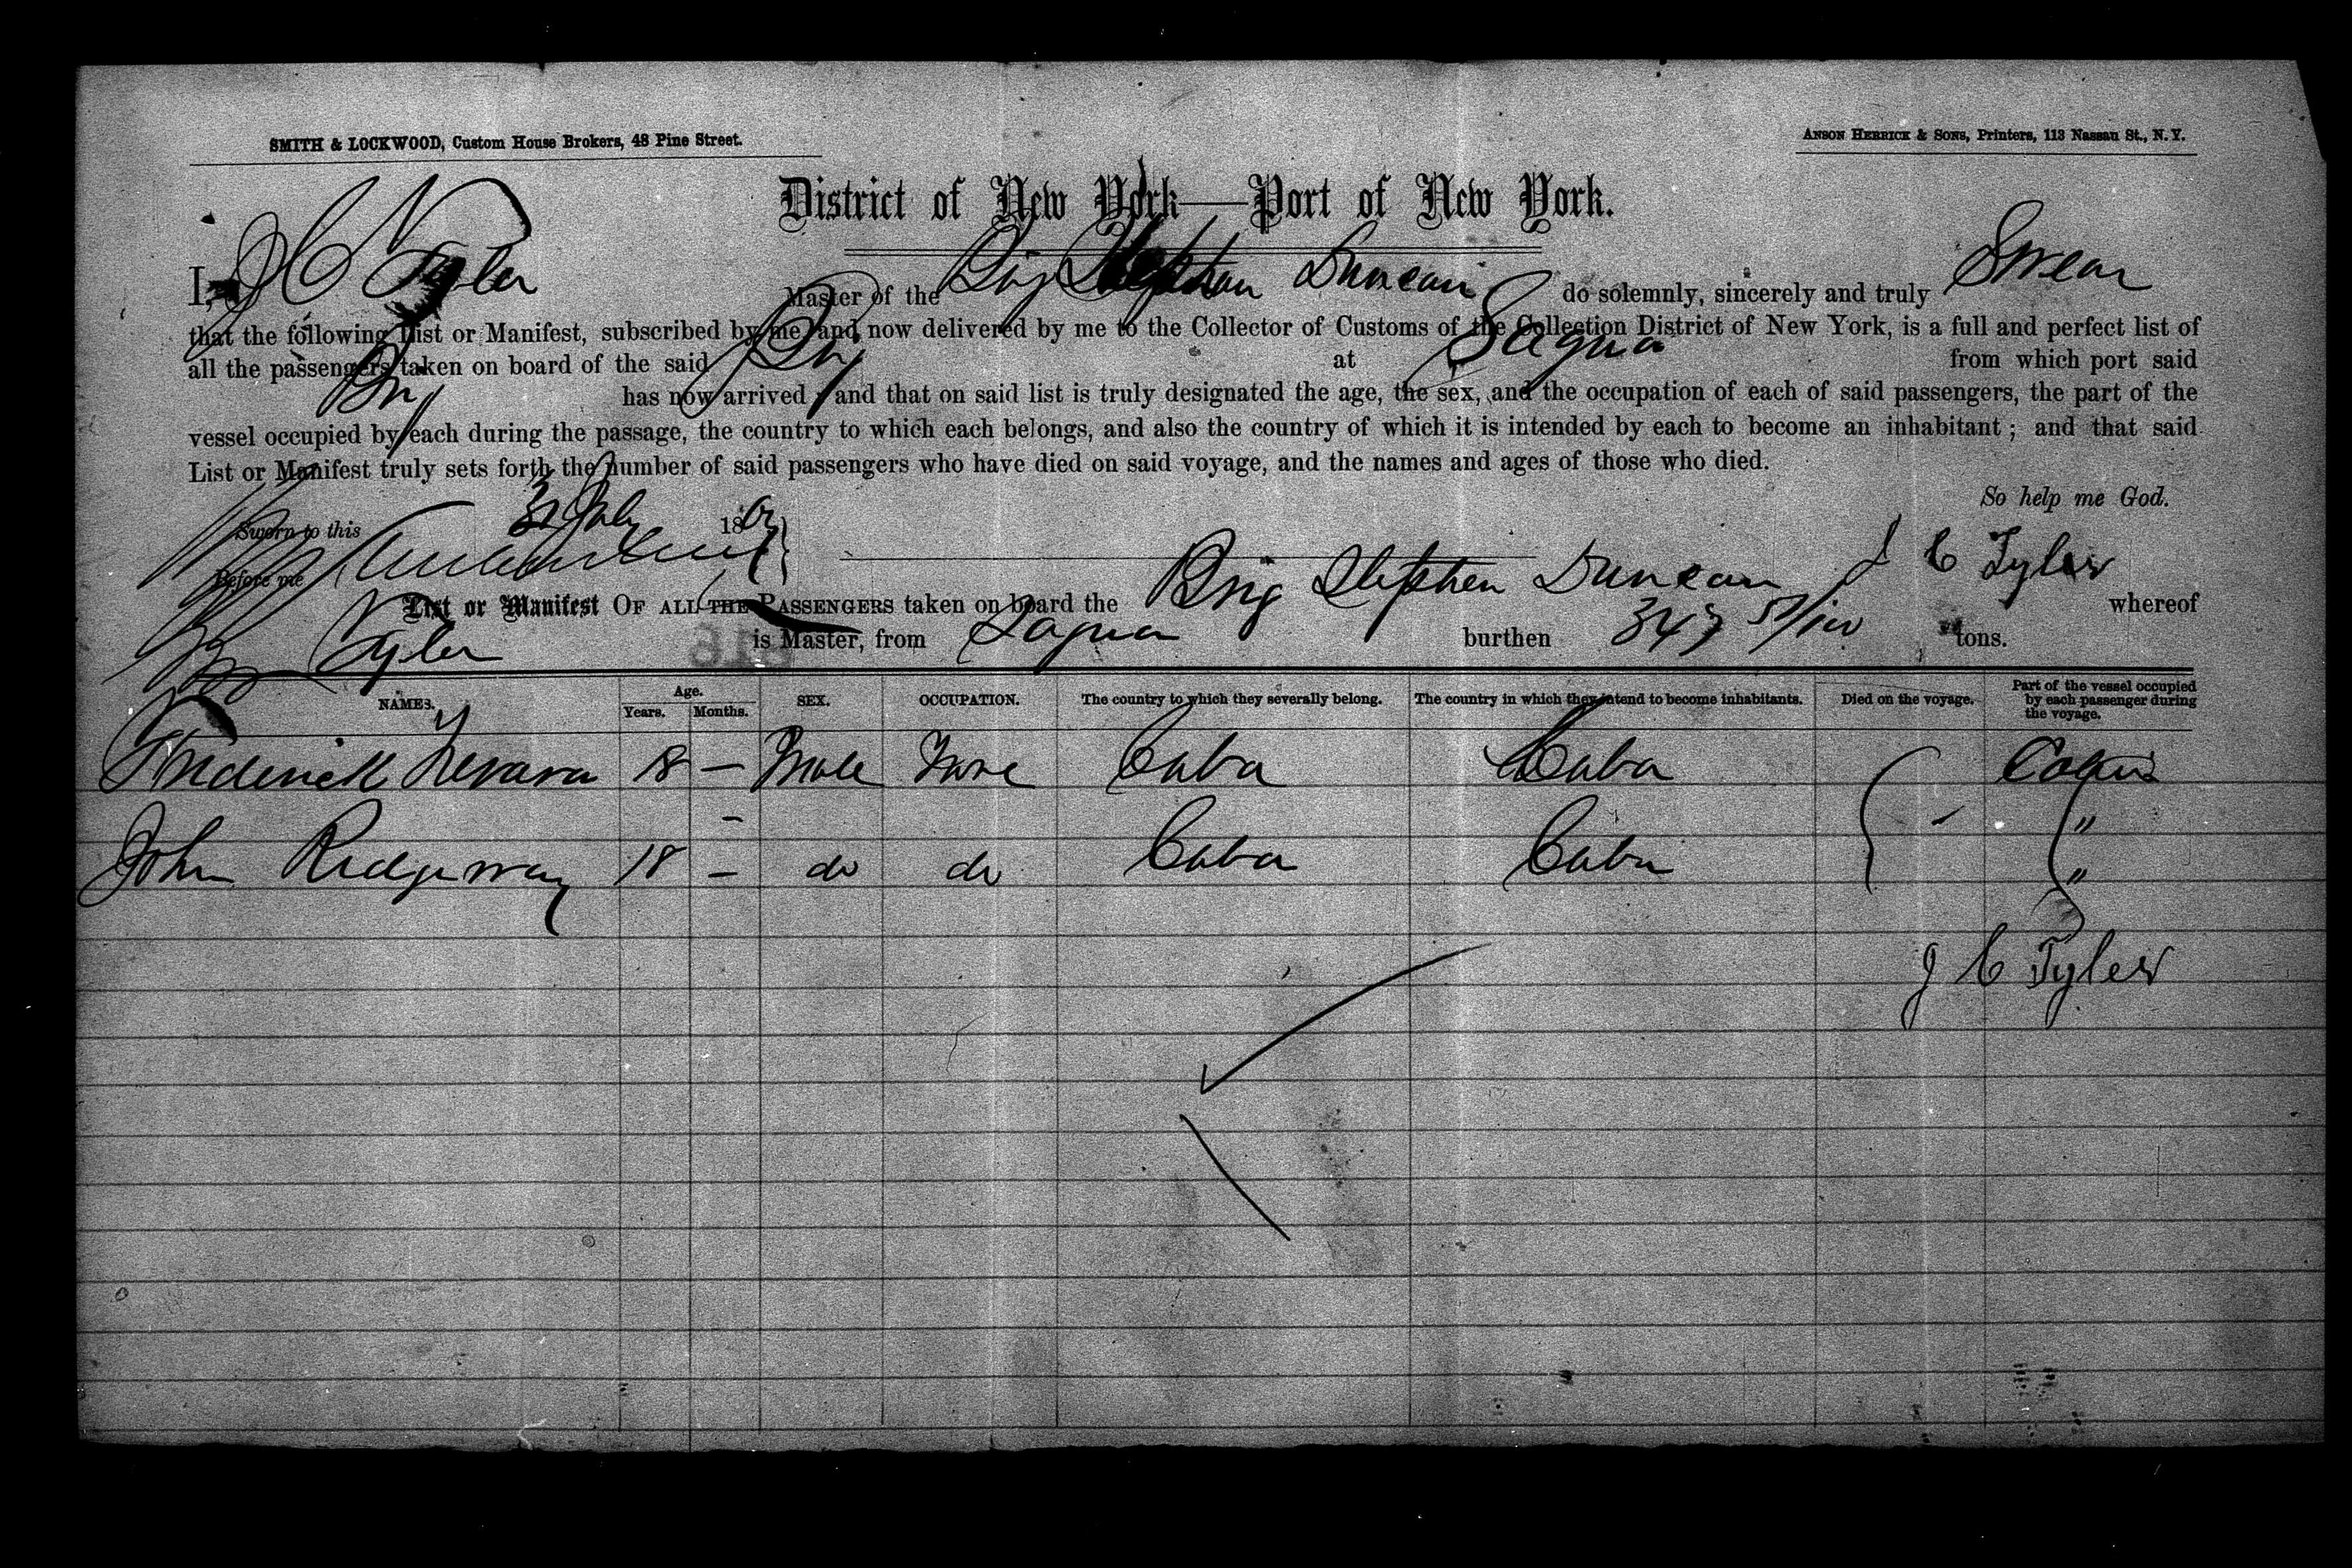 SMITH & LOCKWOOD, Custom House Brokers, 48 Pine Street.
ANSON HERRICK & SONS, Printers, 113 Nassau St., N. Y.
District of New York—Port of New York.
I, J C Tyler Master of the Brig Stephen Duncan do solemnly, sincerely and truly Swear
that the following List or Manifest, subscribed by me, and now delivered by me to the Collector of Customs of the Collection District of New York, is a full and perfect list of
all the passengers taken on board of the said Brig at Sagua from which port said
Brig has now arrived; and that on said list is truly designated the age, the sex, and the occupation of each of said passengers, the part of the
vessel occupied by each during the passage, the country to which each belongs, and also the country of which it is intended by each to become an inhabitant; and that said
List or Manifest truly sets forth the number of said passengers who have died on said voyage, and the names and ages of those who died.
So help me God.
Sworn to this July 18
Before me
J C Tyler
List or Manifest OF ALL THE PASSENGERS taken on board the Brig Stephen Duncan whereof
Tyler is Master, from Sagua burthen 343 tons.
NAMES. Age. Years. Months. SEX. OCCUPATION. The country to which they severally belong. The country in which they intend to become inhabitants. Died on the voyage. Part of the vessel occupied by each passenger during the voyage.
Frederick 18 — Male Cuba Cuba
John Ridgeway 18 — do do Cuba Cuba "
J C Tyler